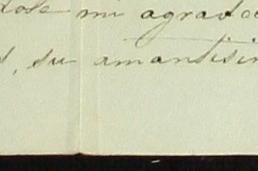 dose mi agradec
s, su amantisim